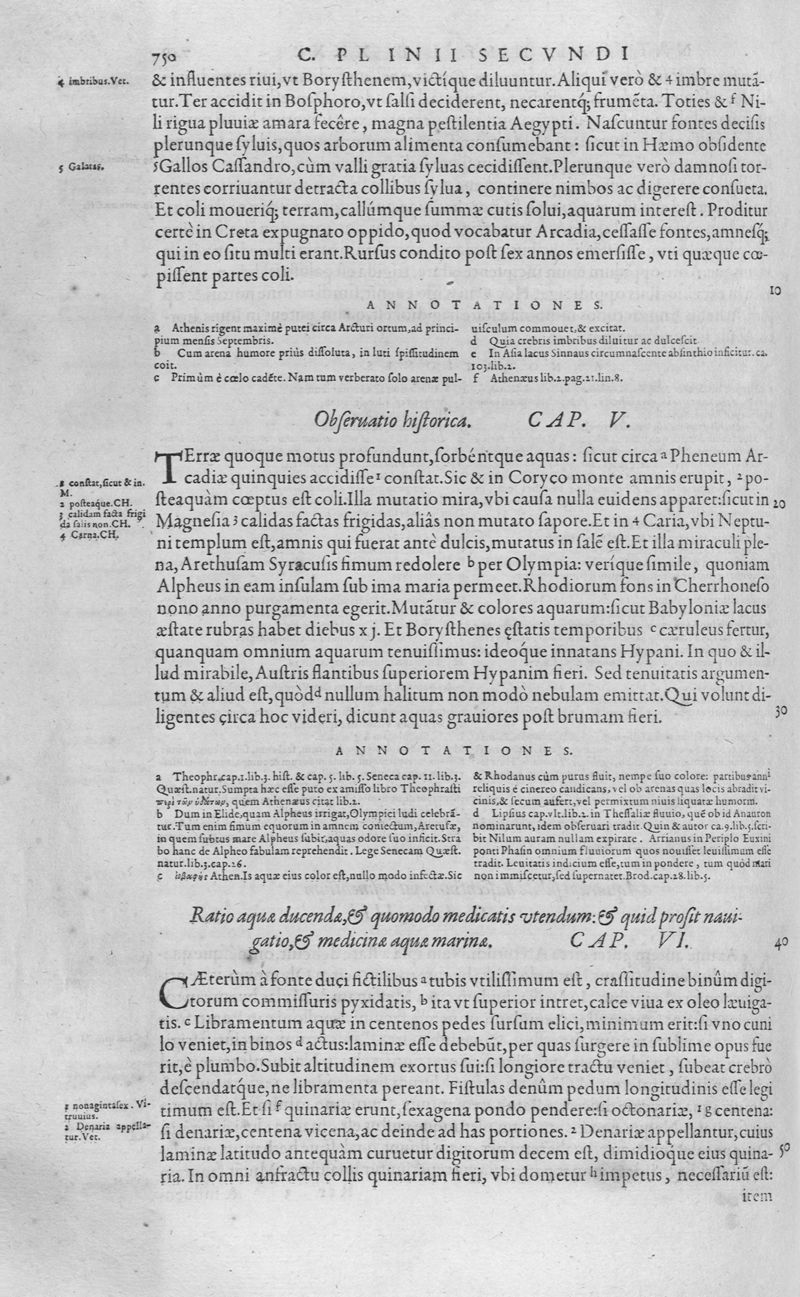 750
C. PLINII SECVNDI
4 imbribus.Vet.
& influentes riui,vt Boryſthenem,victíque diluuntur.Aliqui verò & 4 imbre mutã-
tur.Ter accidit in Boſphoro,vt ſalſi deciderent, necarentq́; frumẽta. Toties & f Ni-
li rigua pluuiæ amara fecêre, magna peſtilentia Aegypti. Naſcuntur fontes deciſis
plerunque ſyluis,quos arborum alimenta conſumebant : ſicut in Hæmo obſidente
5 Galatas.
5Gallos Caſſandro,cùm valli gratia ſyluas cecidiſſent.Plerunque verò damnoſi tor-
rentes corriuantur detracta collibus ſylua, continere nimbos ac digerere conſueta.
Et coli moueriq́; terram,callúmque ſummæ cutis ſolui,aquarum intereſt. Proditur
certè in Creta expugnato oppido,quod vocabatur Arcadia,ceſſaſſe fontes,amneſq́;
qui in eo ſitu multi erant.Rurſus condito poſt ſex annos emerſiſſe, vti quæque cœ-
piſſent partes coli.
10
ANNOTATIONES.
a Athenis rigent maximè putei circa Arcturi ortum,ad princi-
pium menſis Septembris.
b Cum arena humore priùs diſſoluta, in luti ſpiſſitudinem
coit.
c Primùm è cœlo cadẽte. Nam tum verberato ſolo arenæ pul-
uiſculum commouet,& excitat.
d Quia crebris imbribus diluitur ac dulceſcit.
e In Aſia lacus Sinnaus circumnaſcente abſinthio inficitur.ca.
103.lib.2.
f Athenæus lib.2.pag.21.lin.8.
Obſeruatio hiſtorica. CAP. V.
TErræ quoque motus profundunt,ſorbéntque aquas: ſicut circa a Pheneum Ar-
1 conſtat,ſicut & in.
M.
cadiæ quinquies accidiſſe 1 conſtat.Sic & in Coryco monte amnis erupit, 2 po-
2 poſteaque.CH.
ſteaquàm cœptus eſt coli.Illa mutatio mira,vbi cauſa nulla euidens apparet:ſicut in
20
3 calidam facta frigi
da ſalis non.CH.
Magneſia 3 calidas factas frigidas,aliâs non mutato ſapore.Et in 4 Caria,vbi Neptu-
4 Carna.CH.
ni templum eſt,amnis qui fuerat antè dulcis,mutatus in ſalẽ eſt.Et illa miraculi ple-
na, Arethuſam Syracuſis fimum redolere b per Olympia: veríque ſimile, quoniam
Alpheus in eam inſulam ſub ima maria permeet.Rhodiorum fons in Cherrhoneſo
nono anno purgamenta egerit.Mutãtur & colores aquarum:ſicut Babyloniæ lacus
æſtate rubras habet diebus xj. Et Boryſthenes ęſtatis temporibus c cæruleus fertur,
quanquam omnium aquarum tenuiſſimus: ideoque innatans Hypani. In quo & il-
lud mirabile,Auſtris flantibus ſuperiorem Hypanim fieri. Sed tenuitatis argumen-
tum & aliud eſt,quòd d nullum halitum non modò nebulam emittat.Qui volunt di-
ligentes circa hoc videri, dicunt aquas grauiores poſt brumam fieri.
30
ANNOTATIONES.
a Theophr.cap.1.lib.3. hiſt. & cap. 5. lib. 5. Seneca cap. 11. lib.3.
Quæſt.natur.Sumpta hæc eſſe puto ex amiſſo libro Theophraſti
περὶ τῶν ὑδάτων, quem Athenæus citat lib.2.
b Dum in Elide,quam Alpheus irrigat,Olympici ludi celebrã-
tur.Tum enim fimum equorum in amnem coniectum,Aretuſæ,
in quem ſubtus mare Alpheus ſubit,aquas odore ſuo inficit.Stra
bo hanc de Alpheo fabulam reprehendit. Lege Senecam Quæſt.
natur.lib.3.cap.26.
c Athen.Is aquæ eius color eſt,nullo modo infectæ.Sic
& Rhodanus cùm purus fluit, nempe ſuo colore: partibus anni
reliquis è cinereo candicans, vel ob arenas quas locis abradit vi-
cinis,& ſecum aufert,vel permixtum niuis liquatæ humorm.
d Lipſius cap.vlt.lib.2. in Theſſaliæ fluuio, quẽ ob id Anauron
nominarunt, idem obſeruari tradit. Quin & autor ca.9.lib.5.ſcri-
bit Nilum auram nullam expirare. Arrianus in Periplo Euxini
ponti Phaſin omnium fluuiorum quos nouiſſet leuiſſimum eſſe
tradit. Leuitatis indicium eſſe,tum in pondere, tum quòd mari
non immiſcetur,ſed ſupernatet.Brod.cap.28.lib.5.
Ratio aquæ ducendæ,& quomodo medicatis vtendum:& quid proſit naui-
gatio,& medicina aquæ marinæ. CAP. VI.
40
CÆterùm à fonte duci fictilibus a tubis vtiliſſimum eſt, craſſitudine binûm digi-
torum commiſſuris pyxidatis, b ita vt ſuperior intret,calce viua ex oleo læuiga-
tis. c Libramentum aquæ in centenos pedes ſurſum elici,minimum erit:ſi vno cuni
lo veniet,in binos d actus:laminæ eſſe debebũt,per quas ſurgere in ſublime opus fue
rit,è plumbo.Subit altitudinem exortus ſui:ſi longiore tractu veniet, ſubeat crebrò
deſcendatque,ne libramenta pereant. Fiſtulas denûm pedum longitudinis eſſe legi
1 nonagintaſex. Vi-
truuius.
timum eſt.Et ſi f quinariæ erunt,ſexagena pondo pendere:ſi octonariæ, 1 g centena:
2 Denaria appella-
tur.Vet.
ſi denariæ,centena vicena,ac deinde ad has portiones. 2 Denariæ appellantur,cuius
laminæ latitudo antequàm curuetur digitorum decem eſt, dimidioque eius quina-
50
ria. In omni anfractu collis quinariam fieri, vbi dometur h impetus, neceſſariũ eſt:
item